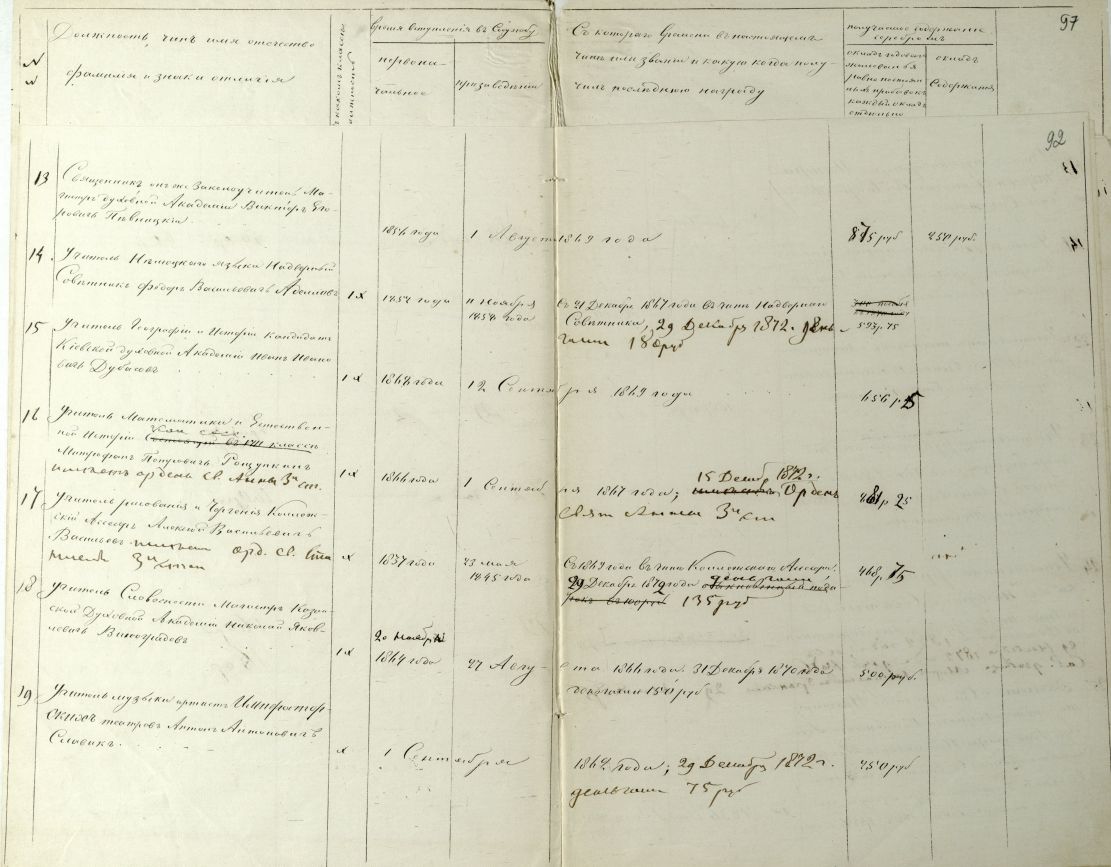 97
Должность, чинъ имя отчество
фамилія и знаки отличія
Время вступленія въ Службу
первона-
чальное
Съ котораго времени въ настоящемъ
чинѣ или званіи и какую когда полу-
чилъ послѣднюю награду
получаемое содержаніе
серебромъ
окладъ
Содержанія
92
13 Священникъ онъ же Законоучитель, Ма-
гистръ духовной Академіи Викторъ Его-
ровичъ Пѣвницкій
1854 года 1 Августа 1869 года 875 руб 250 руб.
14. Учитель Нѣмецкаго языка Надворный
Совѣтникъ Ѳедоръ Васильевичъ
IX 1854 года 11 Ноября
1854 года
съ 21 Декабря 1867 года въ чинѣ Надворнаго
Совѣтника, 29 Декабря 1872 г. день-
гами 180 руб
593 р. 75
15 Учитель Географіи и Исторіи кандидатъ
Кіевской духовной Академіи Иванъ Ивано-
вичъ Дубасовъ
IX 1868 года 12 Сентября 1869 года 656 р 25
16 Учитель Математики и Естествен-
ной Исторіи Состоящій въ VIII классѣ
Митрофанъ Петровичъ
имѣетъ орденъ Св. Анны 3й ст.
IX 1866 года 1 Сентября 1867 года; 15 Декабр 1872 г. Орденъ
Свят Анны 3й ст
р 25
17 Учитель рисованія и Черченія Коллеж-
скій Ассесоръ Алексѣй Васильевичъ
Васильевъ имѣетъ орд. Св. Ста
нислав 3й степени
IX 1837 года 23 мая
1845 года
Съ 1869 года въ чинѣ Коллежскаго Ассесора.
29 Декабря 1872 года деньгами
135 руб
468 р 75
18 Учитель Словесности Магистръ Казан-
ской Духовной Академіи Николай Яков-
левичъ Виноградовъ
20 Ноября
IX 1864 года 27 Августа 1866 года. 31 Декабря 1870 года
деньгами 150 руб
500 руб.
19 Учитель музыки артистъ Император-
скихъ театровъ Антонъ Антоновичъ
Славикъ.
X 1 Сентября 1862 года; 29 Декабря 1872 г.
деньгами 75 руб
250 руб